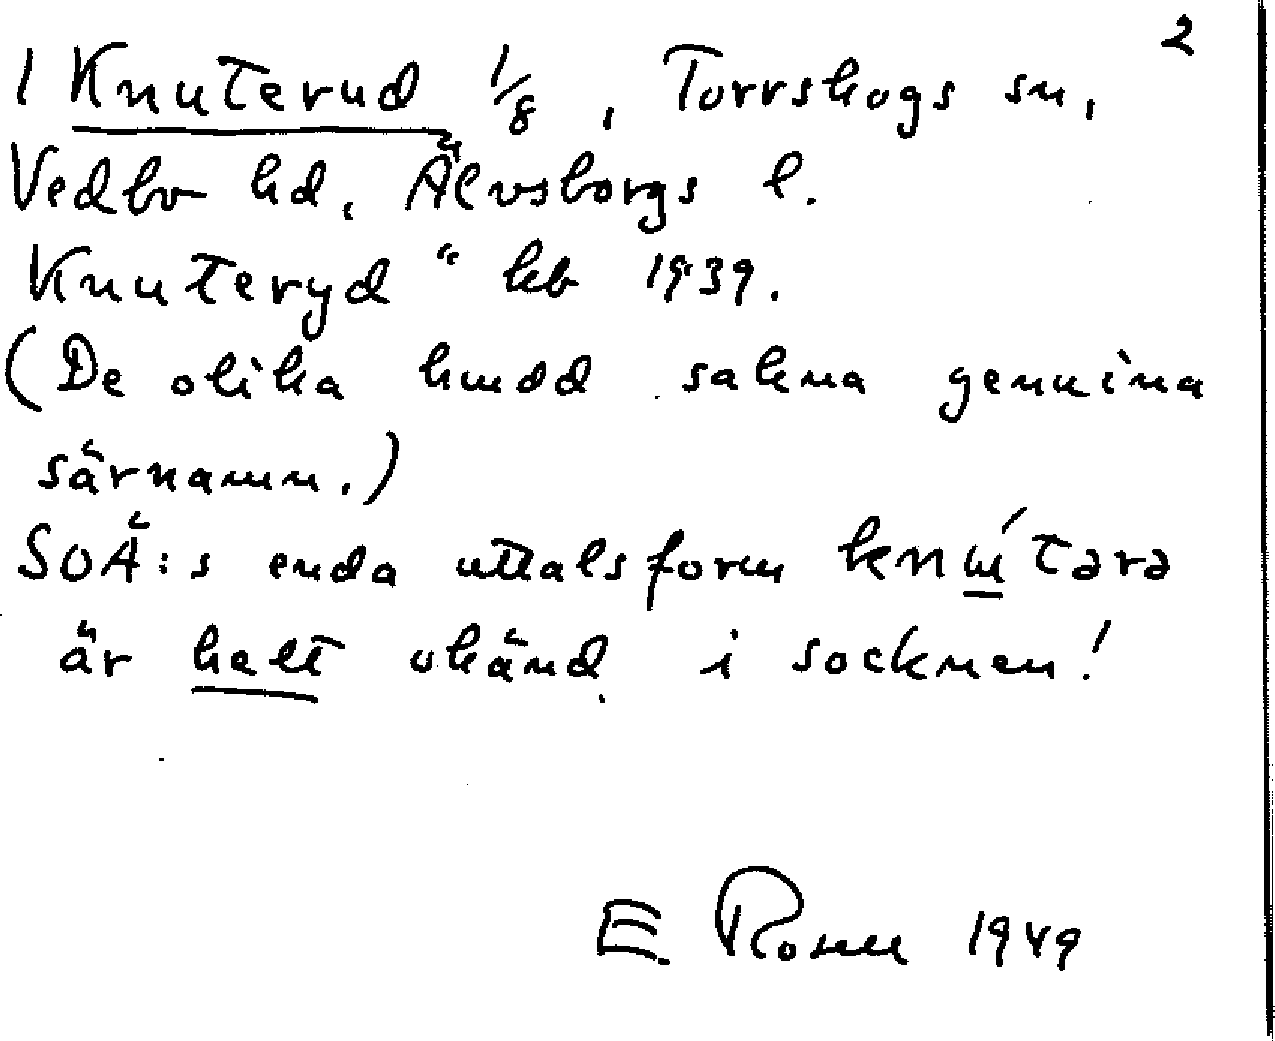 2
1 Knuterud 1/8, Torrskogs sn,
Vedbo hd, Älvsborgs l.
Knuteryd " kb 1939.
(De olika hmdd sakna genuina
särnamn.)
SOÄ:s enda uttalsform knú̱tərə
är helt okänd i socknen!
E. Rosell 1949